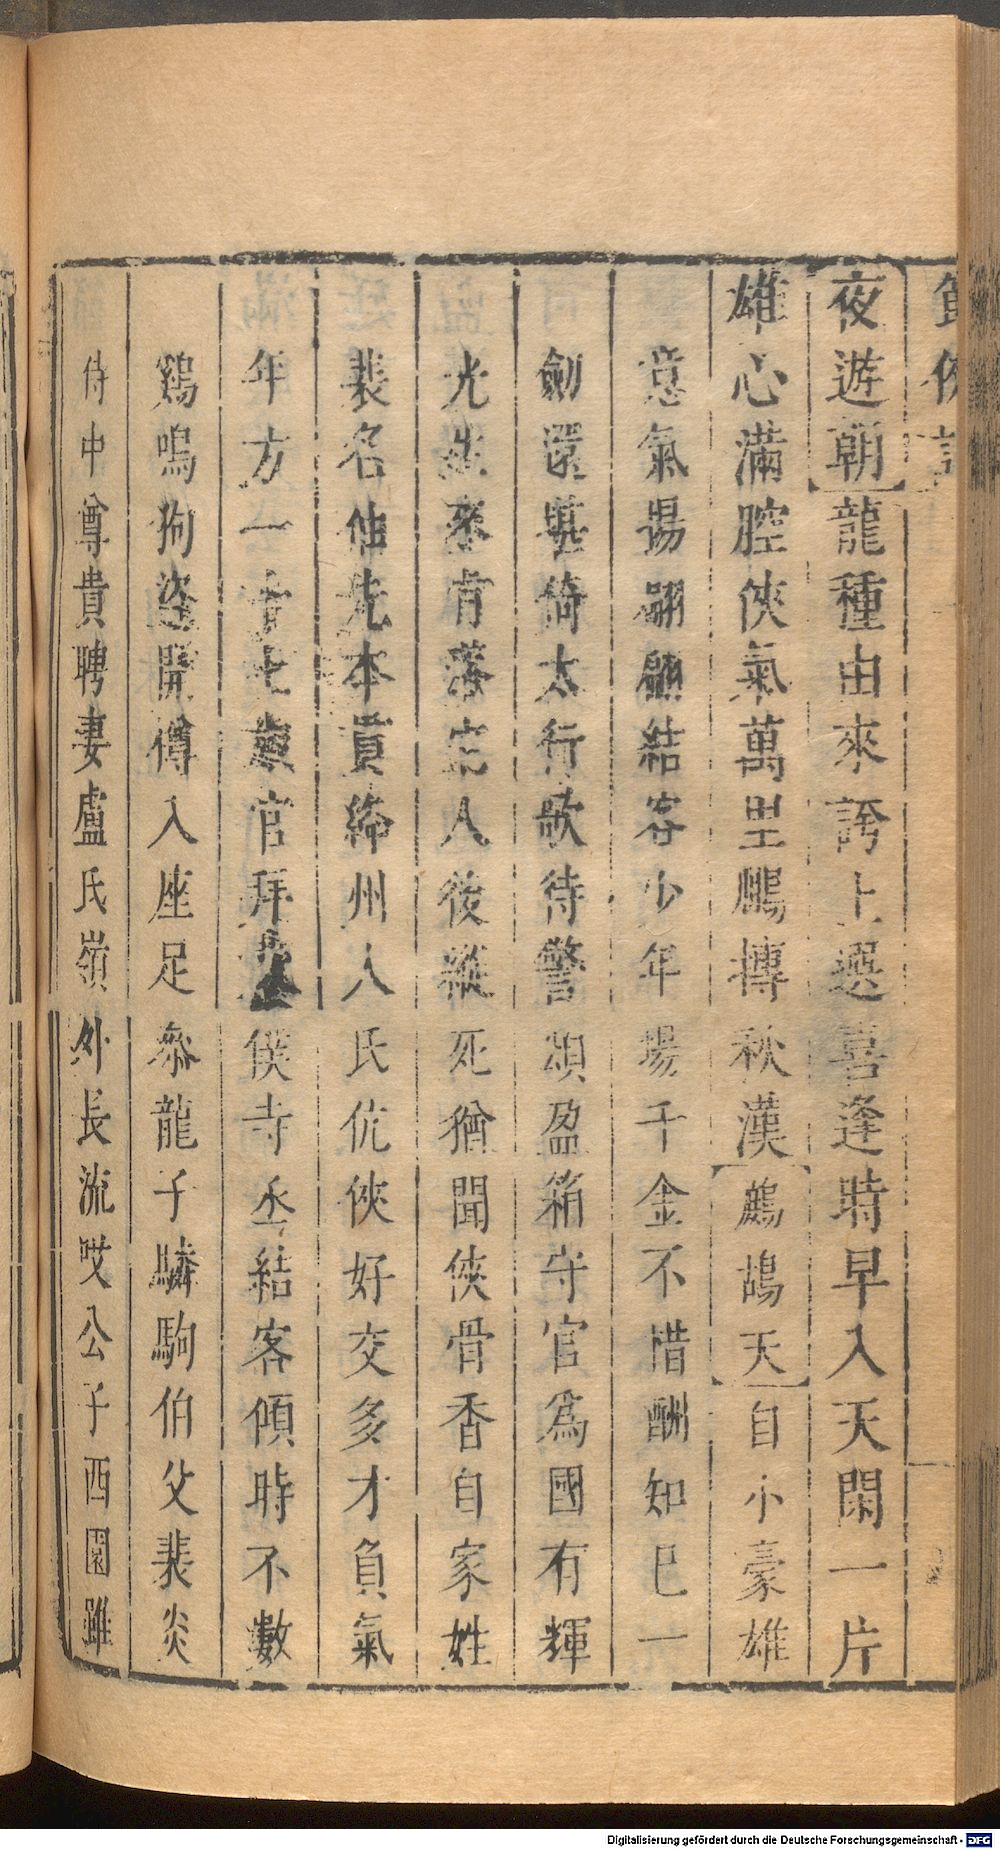 夜遊朝龍種由來誇上選喜逢時早入天閑一片
雄心滿腔俠氣萬里鵬摶秋漢鷓鴣天自小豪雄
意氣揚翩翩結客少年場千金不惜酬知已一
劍還堪倚太行歌待警頌盈箱守官爲國有輝
光生來肯落它人後縱死猶聞俠骨香自家姓
裴名伷先本貫絳州人氏伉俠好交多才負氣
年方一十七歲官拜僕寺丞結客傾時不數
鷄鳴狗盜開樽入座足叅龍子驎駒伯父裴炎
侍中尊貴聘妻盧氏嶺外長流哎公子西園雖
Digitalisierung gefördert durch die Deutsche Forschungsgemeinschaft - DFG